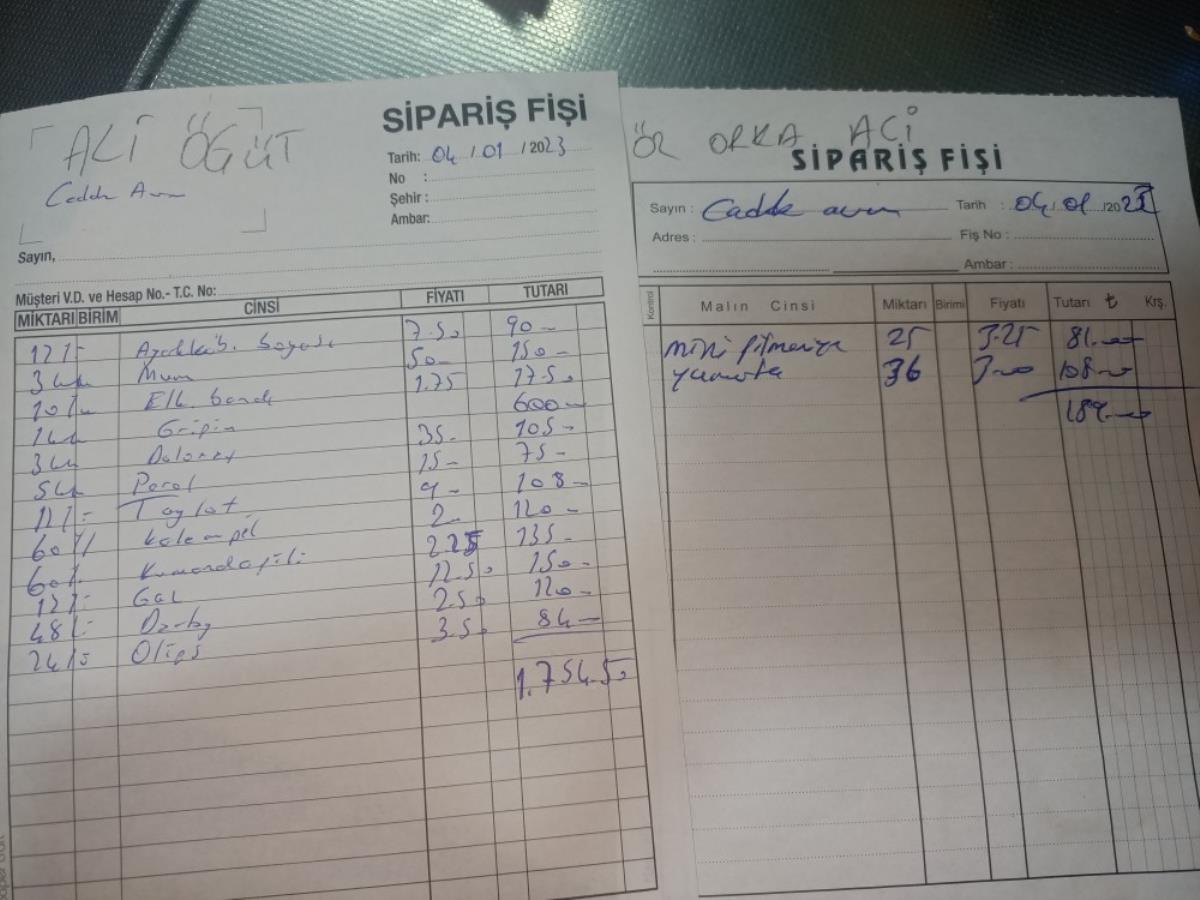 ALİ ÖGÜT
Cadde Avm
SİPARİŞ FİŞİ
Tarih: 04 / 01 / 2023
No :
Şehir :
Ambar:
Sayın,
Müşteri V.D. ve Hesap No.- T.C. No:
MİKTARI BİRİM CİNSİ FİYATI TUTARI
12 Ayakkab. boyası 7.50 90-
3 Mum 50- 150-
10 Elk. bandı 1.75 17.50
1 Gripin 600-
3 Dolorex 35- 105-
5 Parol 15- 75-
12 Toylot 9- 108-
60 Kalem pil 2- 120-
60 Kumanda pili 2.25 135-
12 12.50 150-
48 2.50 120-
24 Olips 3.50 84-
1.754.50
ÖZ ORKA ACİ
SİPARİŞ FİŞİ
Sayın : Cadde avm Tarih : 04/01/2023
Adres : Fiş No :
Ambar :
Kontrol Malın Cinsi Miktarı Birimi Fiyatı Tutarı ₺ Krş.
mini 25 3.25 81.-
yumurta 36 3-00 108-00
189.-